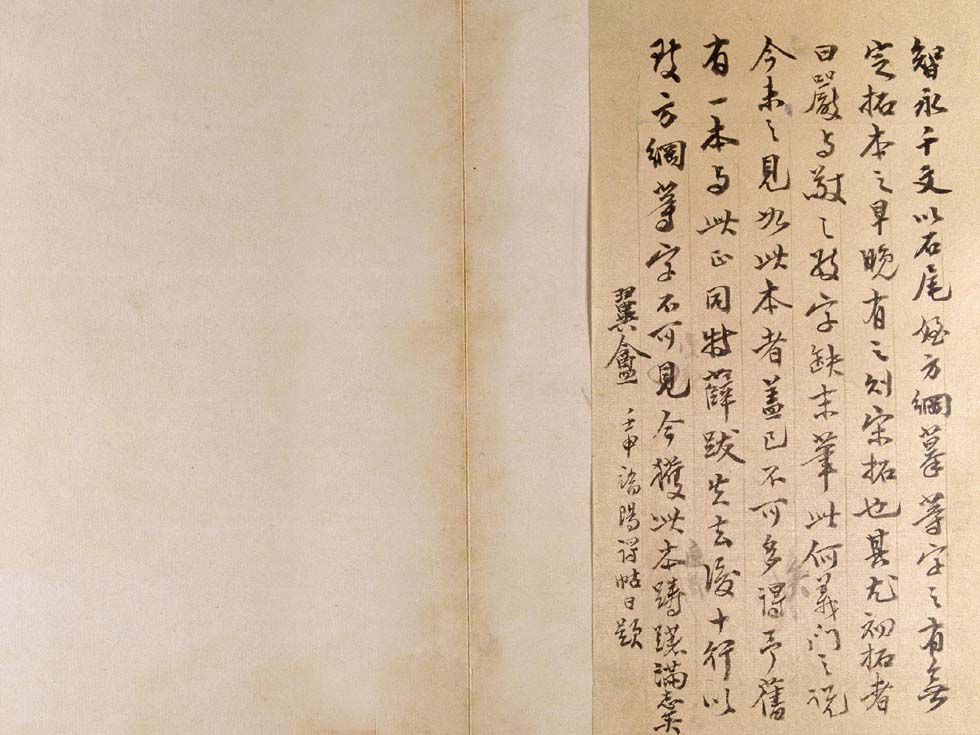 智永千文以石尾姪方綱摹等字之有無
定拓本之早晚有之則宋拓也其尤初拓者
曰嚴与敬之敬字缺末筆此何義門之說
今未之見如此本者蓋已不可多得予舊
有一本与此正同特薛跋失去後十行以
致方綱等字不可見今獲此本躊躇滿志矣
翼盦 壬申 陽 帖日題